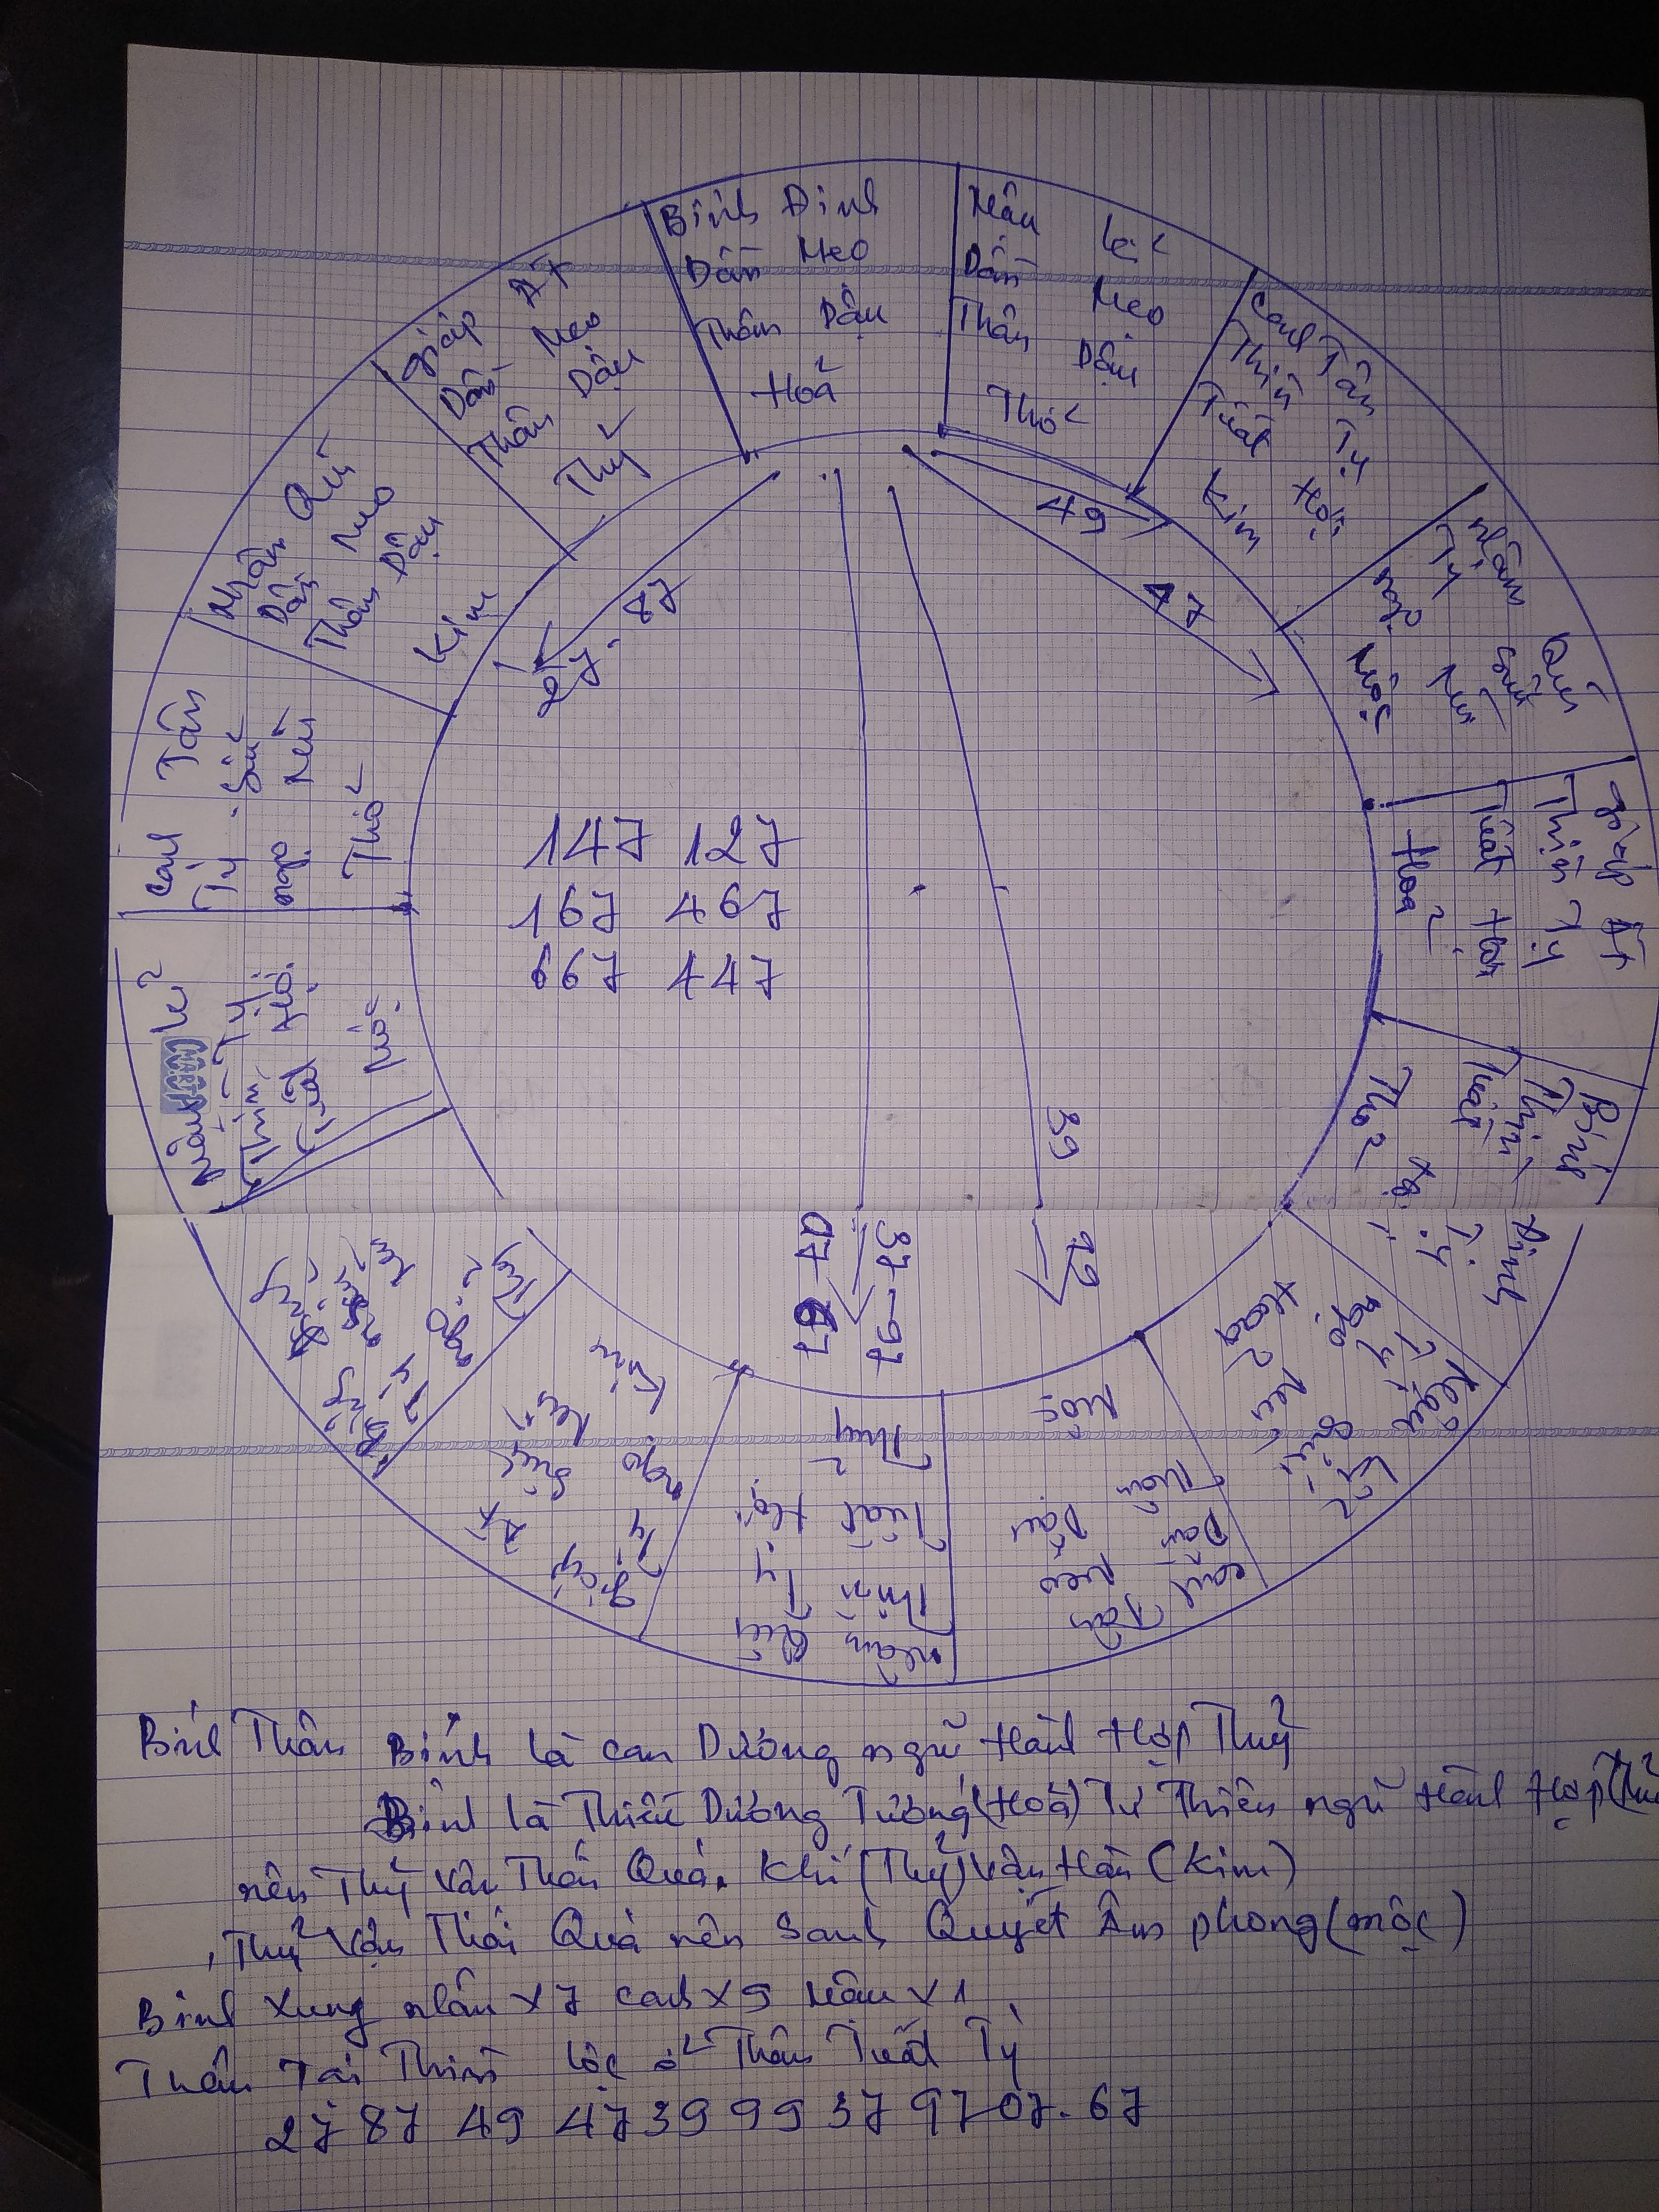 Bính Đinh
Dần Mẹo
Thân Dậu
Hoả
Mậu Kỉ
Dần Mẹo
Thân Dậu
Thổ
Canh Tân
Thìn Tỵ
Tuất Hợi
Kim
Nhâm Quí
Tý Sửu
ngọ Mùi
Mộc
Giáp Ất
Thìn Tỵ
Tuất Hợi
Hoả
Bính
Thìn
Tuất
Thổ
Đinh
Tỵ
Hợi
Mậu Kỉ
Tý Sửu
ngọ Mùi
Hoả
Canh Tân
Dần Mẹo
Thân Dậu
Mộc
Nhâm Quí
Thìn Tỵ
Tuất Hợi
Thuỷ
Giáp Ất
Tý Sửu
ngọ Mùi
Kim
Bính Đinh
Tý Sửu
ngọ Mùi
Thuỷ
Mậu Kỉ
Thìn Tỵ
Tuất Hợi
Mộc
Canh Tân
Tý Sửu
ngọ Mùi
Thổ
Nhâm Quí
Dần Mẹo
Thân Dậu
Kim
Giáp Ất
Dần Mẹo
Thân Dậu
Thuỷ
49
47
27. 87
147 127
167 467
667 447
39
99
37-97
07-67
Bính Thân Bính là can Dương ngũ Hành Hợp Thuỷ
Bính là Thiếu Dương Tướng (Hoả) Tư Thiên ngũ Hành Hợp
nên Thuỷ Vận Thái Quá. Khí (Thuỷ) Vận Hàn (Kim)
Thuỷ Vận Thái Quá nên Sanh Quyết Âm phong (mộc)
Bính xung nhâm x7 canh x9 Mậu x1
Tuần Tại Thìn lộc ở Thân Tuất Tý
27 87 49 47 39 99 37 97 07. 67